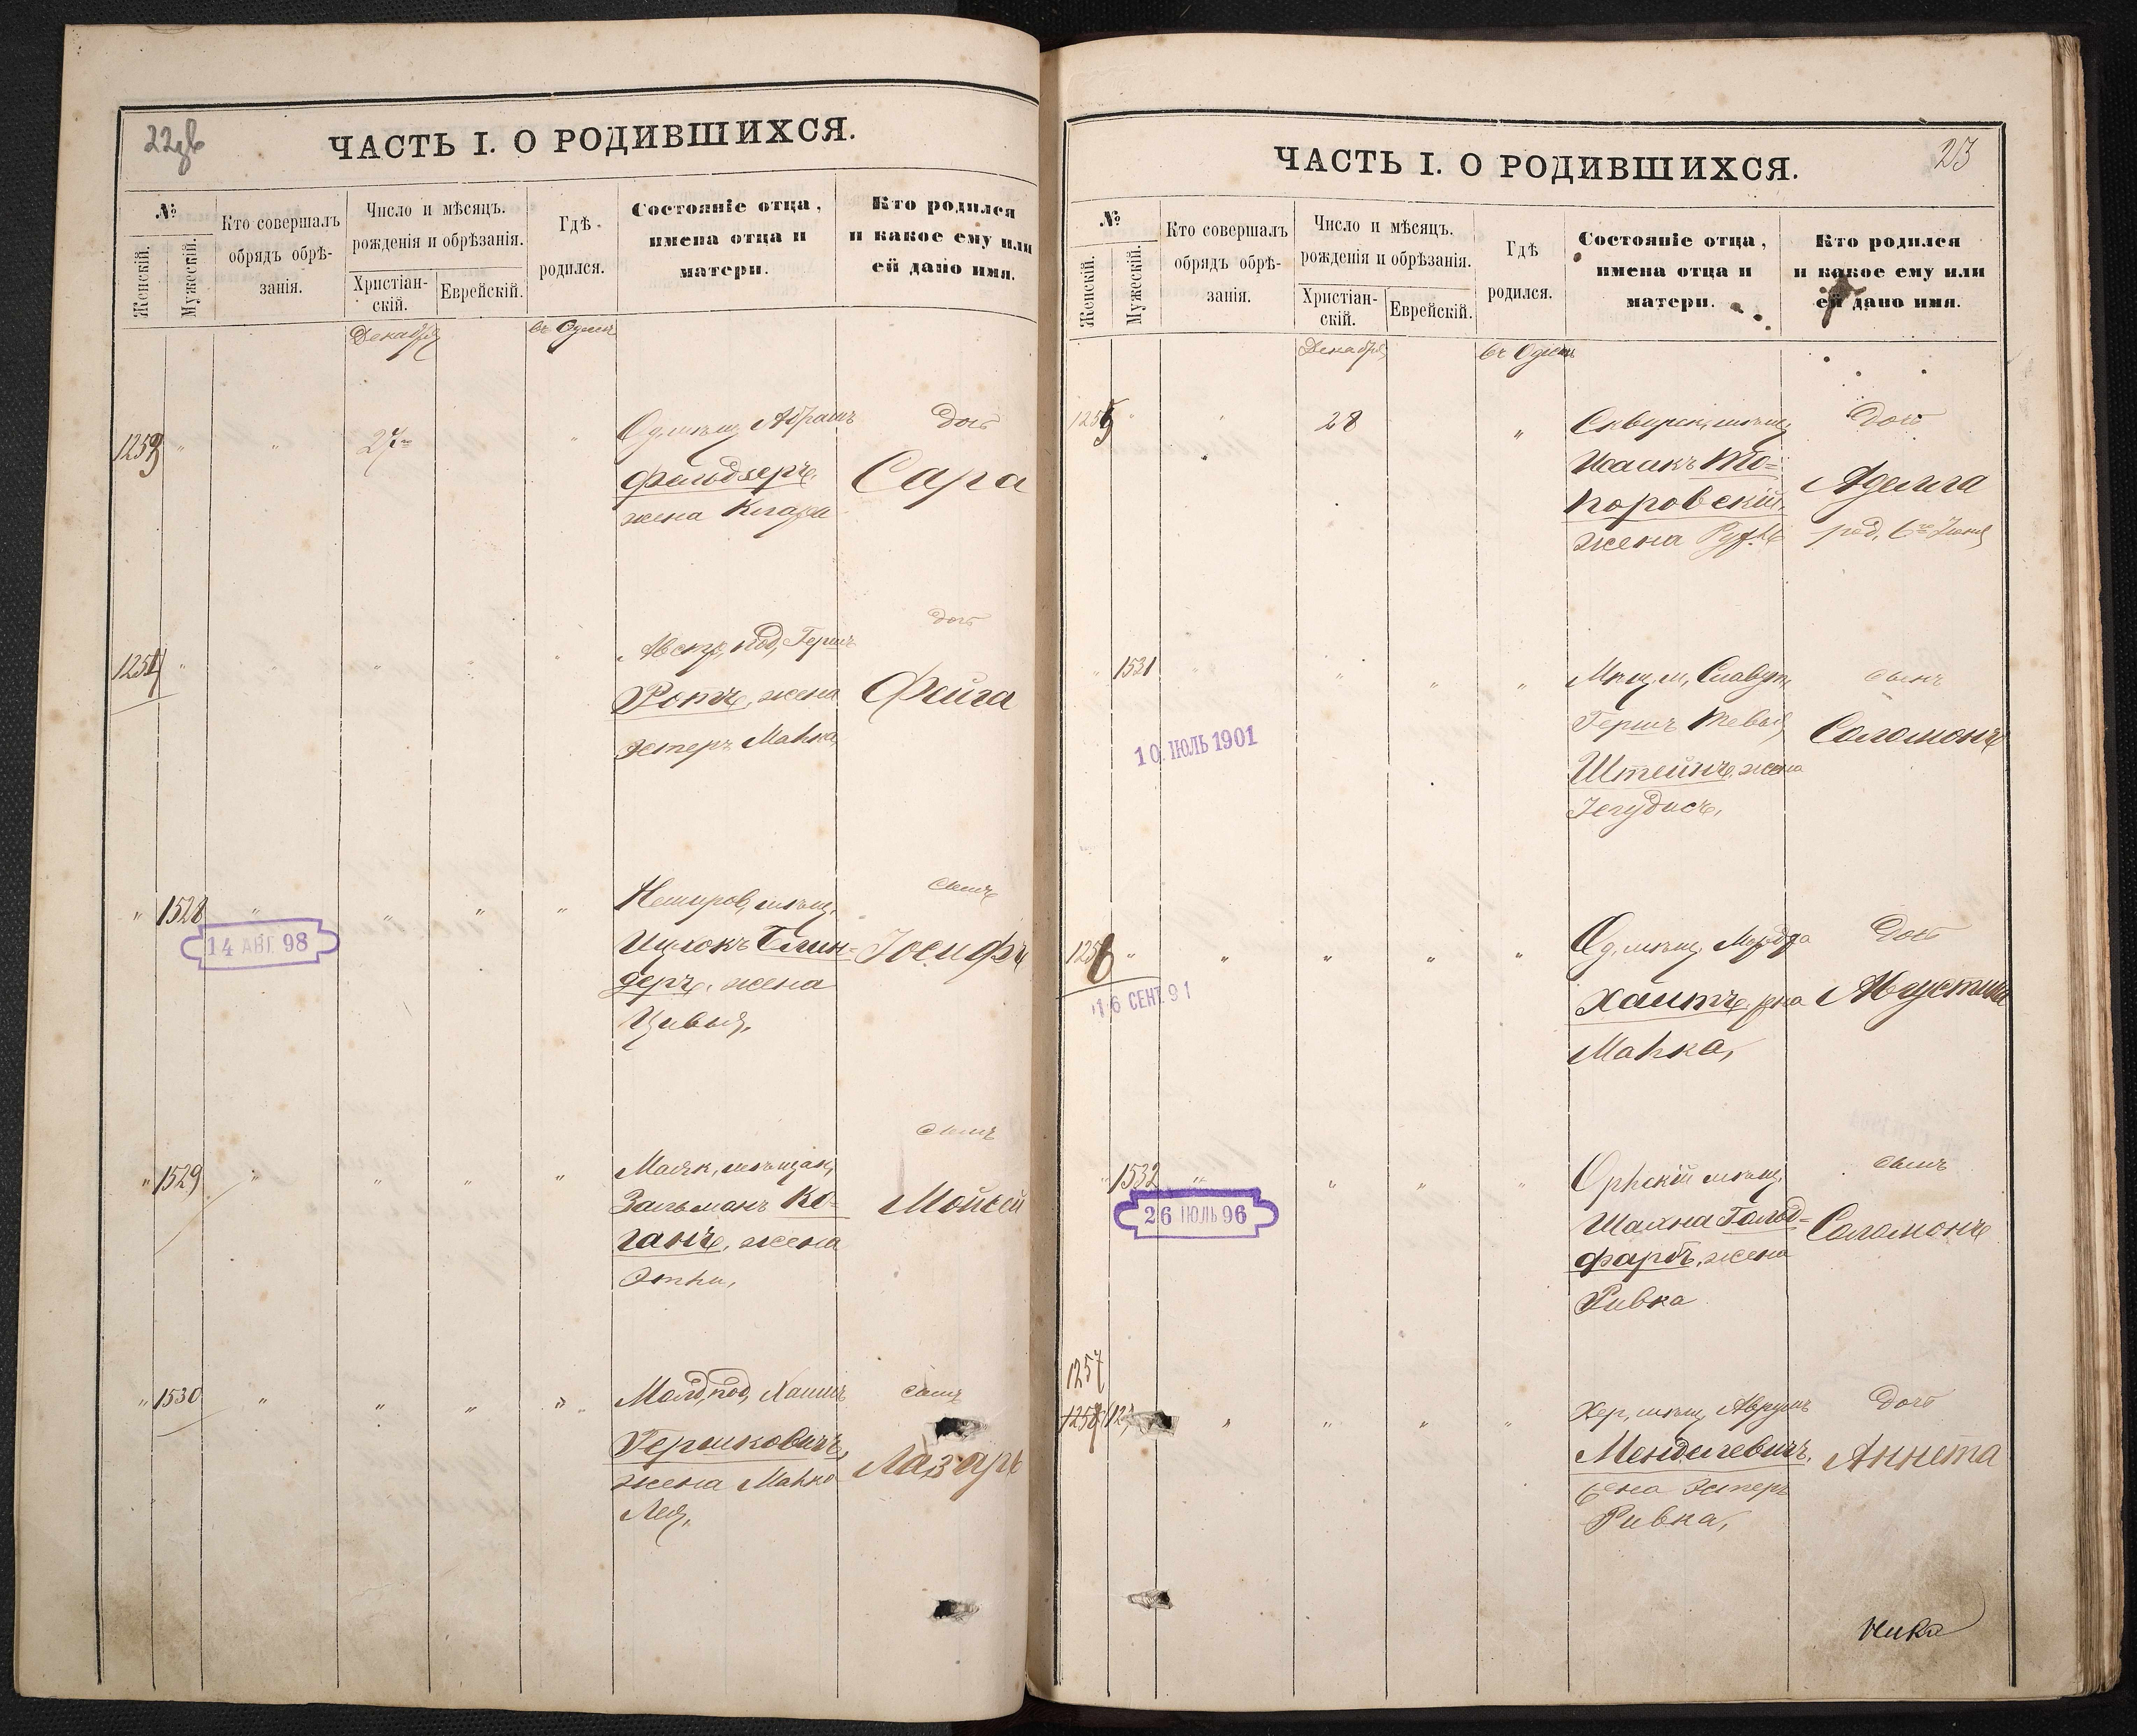 22об
ЧАСТЬ I. О РОДИВШИХСЯ.
№
Женскій.
Мужескій.
Кто совершалъ
обрядъ обрѣ-
занія.
Число и мѣсяцъ.
рожденія и обрѣзанія.
Христіан-
скій.
Еврейскій.
Гдѣ
родился.
Состояніе отца,
имена отца и
матери.
Кто родился
и какое ему или
ей дано имя.
Декабря
въ Одессѣ
1253 " " 27го "
Од. мѣщ. Абрамъ
жена Клара
Доч
Сара
1254 " " " " "
Австр. под. Гершъ
Ротъ, жена
Эстеръ Маhка
доч
Фейга
" 1528 " " " "
14 АВГ. 98
Немиров. мѣщ.
Ицхокъ Блин-
деръ, жена
Цивья,
сынъ
Іосифъ
" 1529 " " " "
Маяк. мѣщан.
Зальманъ Ко-
ганъ, жена
Этhи,
сынъ
Мойсей
" 1530 " " " "
Молд. под. Хаимъ
Гершковичъ,
жена Маhка
Лея,
сынъ
Лазарь
23
ЧАСТЬ I. О РОДИВШИХСЯ.
№
Женскій.
Мужескій.
Кто совершалъ
обрядъ обрѣ-
занія.
Число и мѣсяцъ.
рожденія и обрѣзанія.
Христіан-
скій.
Еврейскій.
Гдѣ
родился.
Состояніе отца,
имена отца и
матери.
Кто родился
и какое ему или
ей дано имя.
Декабря
въ Одессѣ
1255 " " 28 "
Сквирск. мѣщ.
Исаакъ То-
поровскій,
жена
Доч
Аделя
род. 6го Іюня
" 1531 " " " "
10. ІЮЛЬ 1901
Мѣщ. м. Славут.
Гершъ Тевья
Штейнъ, жена
Іегудисъ,
сынъ
Соломонъ
1256 " " " " "
16 СЕНТ. 91
Од. мѣщ. Мордха
Хаитъ, жна
Маhка,
Доч
Августина
" 1532 " " " "
26 ІЮЛЬ 96
Орhскій мѣщ.
Шахна Гольд-
фарбъ, жена
Ривка
сынъ
Соломонъ
1257
" " " "
Хер. мѣщ. Аврумъ
Менделевичъ,
жена Эстеръ
Ривка,
Доч
Аннета